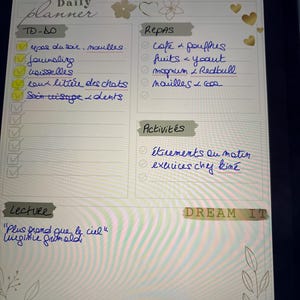 Daily
planner
TO-DO
repas du soir : moules
journaling
vaisselles
eau + litière des chats
Soin visage + dents
REPAS
café + pouffres
fruits + yaourt
magnum + Redbull
moules + coca
Activités
étirements du matin
exercices chez kiné
Lecture
"Plus grand que le ciel"
Virginie Grimaldi
DREAM IT